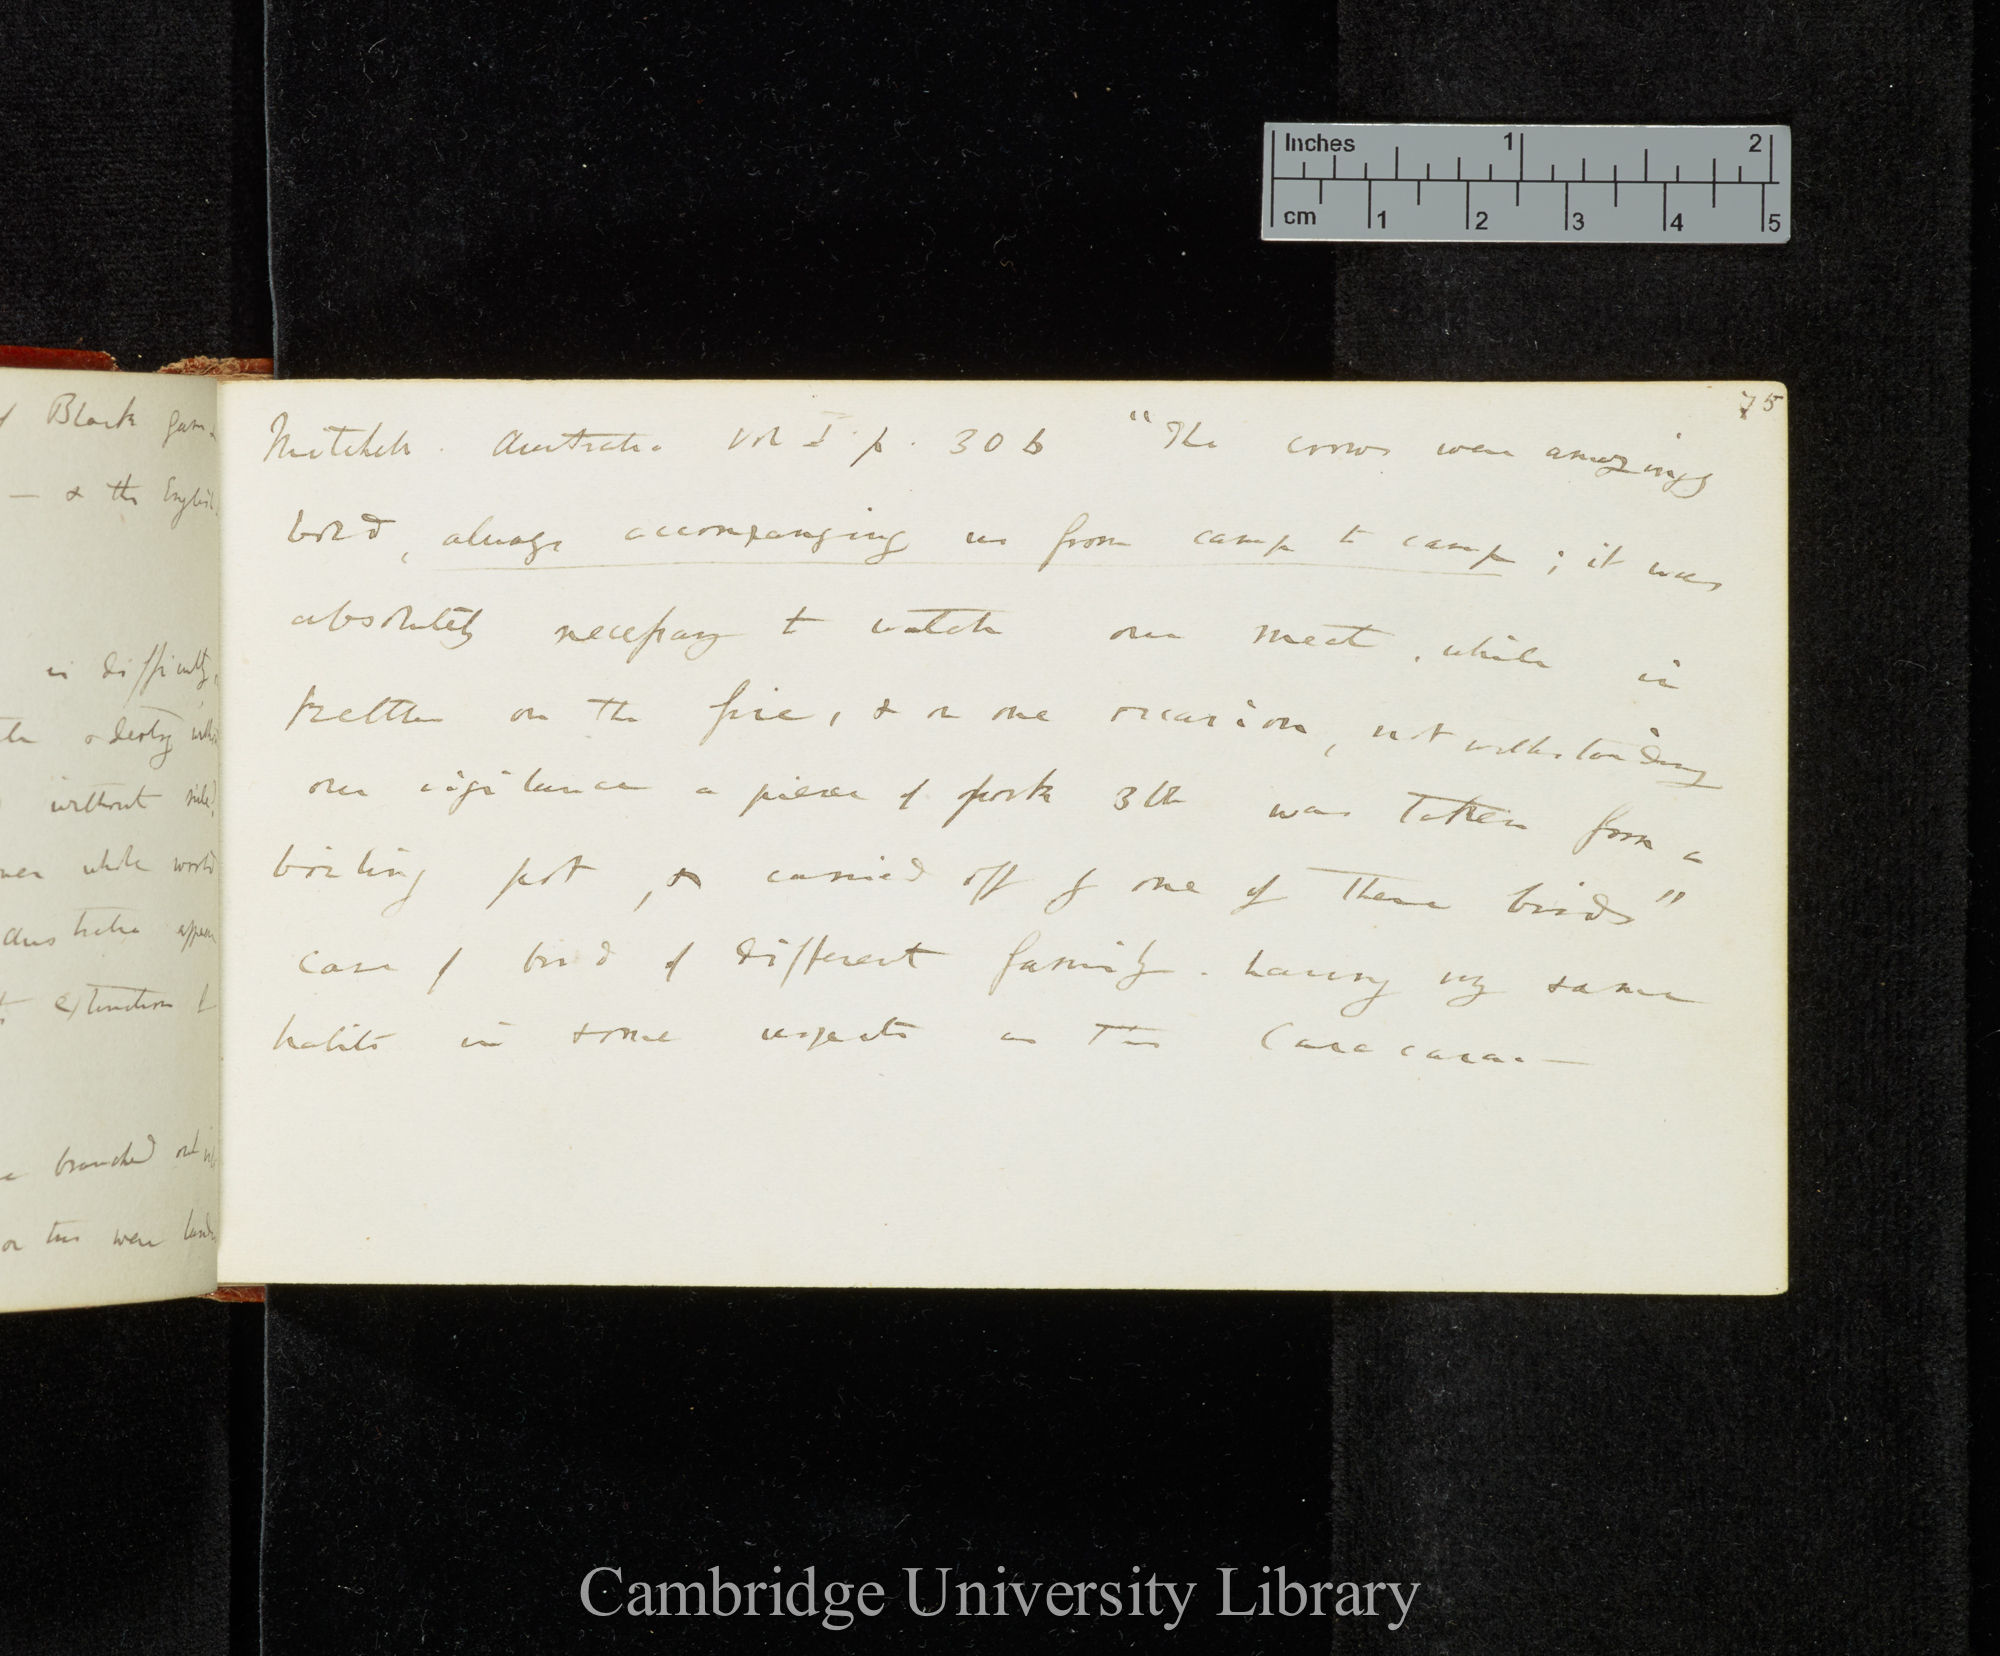 of Black game
— & the English
in difficulty,
& destroy
without
whole world
Australia appear
extinction
branched out
on this were
75
Mitchell. Australia Vol I. p. 306 "The crows were amazingly
bold, always accompanying us from camp to camp; it was
absolutely necessary to watch our meat, while in
kettle on the fire, & on one occasion, notwithstanding
our vigilance a piece of pork 3lb was taken from a
boiling pot, & carried off by one of these birds"
case of bird of different family. having very same
habits in some respects as this Caracara.—
Inches 1 2
cm 1 2 3 4 5
Cambridge University Library